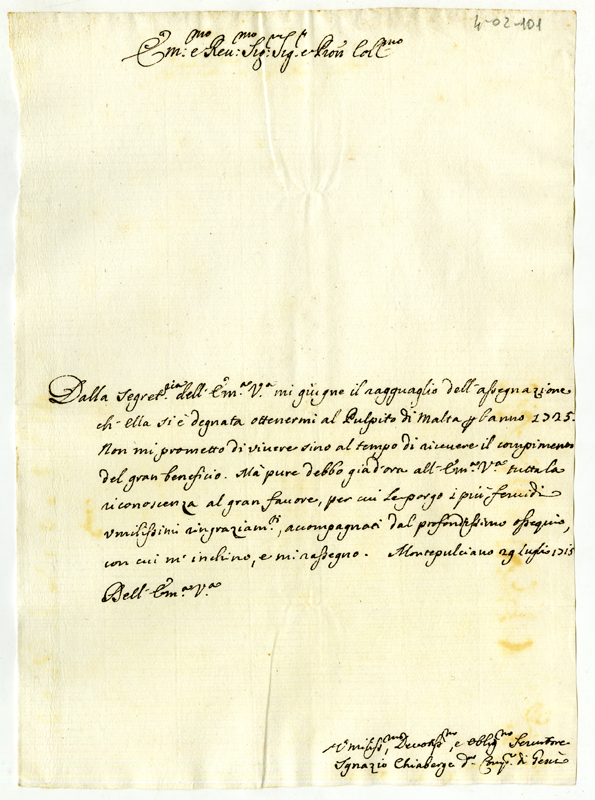 4-02-101
Em:mo e Reu:mo Sig:r Sig:r e Pron Coll:mo
Dalla Segret:ria dell'Em:a V:a mi giugne il ragguaglio dell'assegnazione
ch'Ella si è degnata ottenermi al Pulpito di Malta p l'anno 1725.
Non mi prometto di vivere sino al tempo di ricevere il compimento
del gran beneficio. Mà pure debbo già d'ora all'Em:a V:a tutta la
riconoscenza al gran favore, per cui Le porgo i più fervidi
umilissimi ringraziam:ti, acompagnati dal profondissimo ossequio,
con cui m'inchino, e mi rassegno. Montepulciano 29 Luglio 1715
Dell'Em:a V:a
Umiliss:mo, Devotiss:mo, e Oblig:mo Servitore
Ignazio Chiaberge d:a Comp:a di Giesù